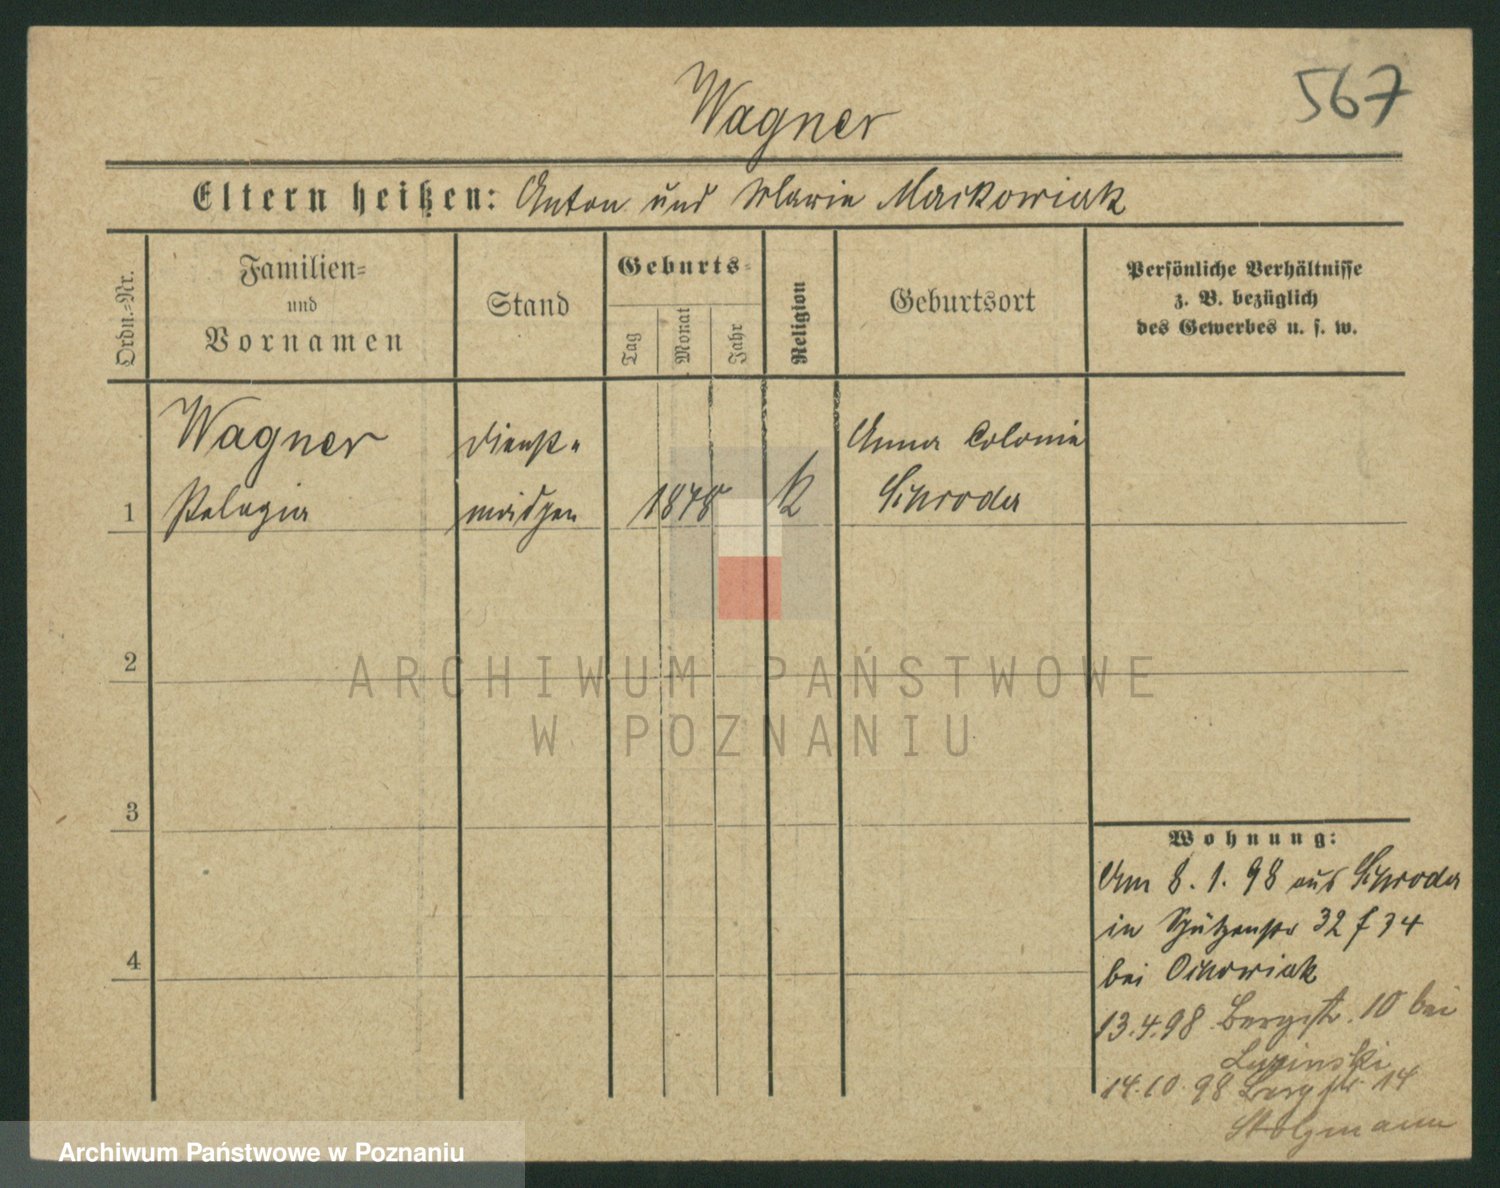 Wagner
567
Eltern heißen: Anton und Marie Maćkowiak
Ordn.=Nr.
Familien=
und
Vornamen
Stand
Geburts=
Tag
Monat
Jahr
Religion
Geburtsort
Persönliche Verhältnisse
z. B. bezüglich
des Gewerbes u. s. w.
Wagner
Dienst-
Anna Colonie
1
Pelagia
mädchen
1878
k
Schroda
2
3
4
ARCHIWUM PAŃSTWOWE
W POZNANIU
Wohnung:
Am 8.1.98 aus Schroda
in Schützenstr 32 34
bei
13.4.98 Bergstr. 10 bei
14.10.98 Bergstr. 14
Stolzmann
Archiwum Państwowe w Poznaniu